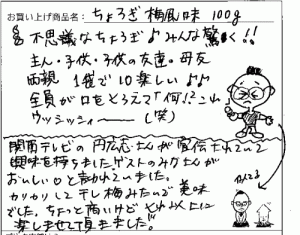 お買い上げ商品名：ちょろぎ 梅風味 100g
不思議なちょろぎ♪みんな驚く!!
主人・子供・子供の友達・母友
両親 1袋で10楽しい♪♪
全員が口をとろえて「何!?これ
ウッシッシー (笑)
関西テレビの円広志さんが宣伝されていて
興味を持ちました ゲストのみなさんが
おいしい♡と言われていました。
カリカリして干し梅みたいで美味
でした。ちょっと高いけどそれ以上に
楽しませて頂きました!!